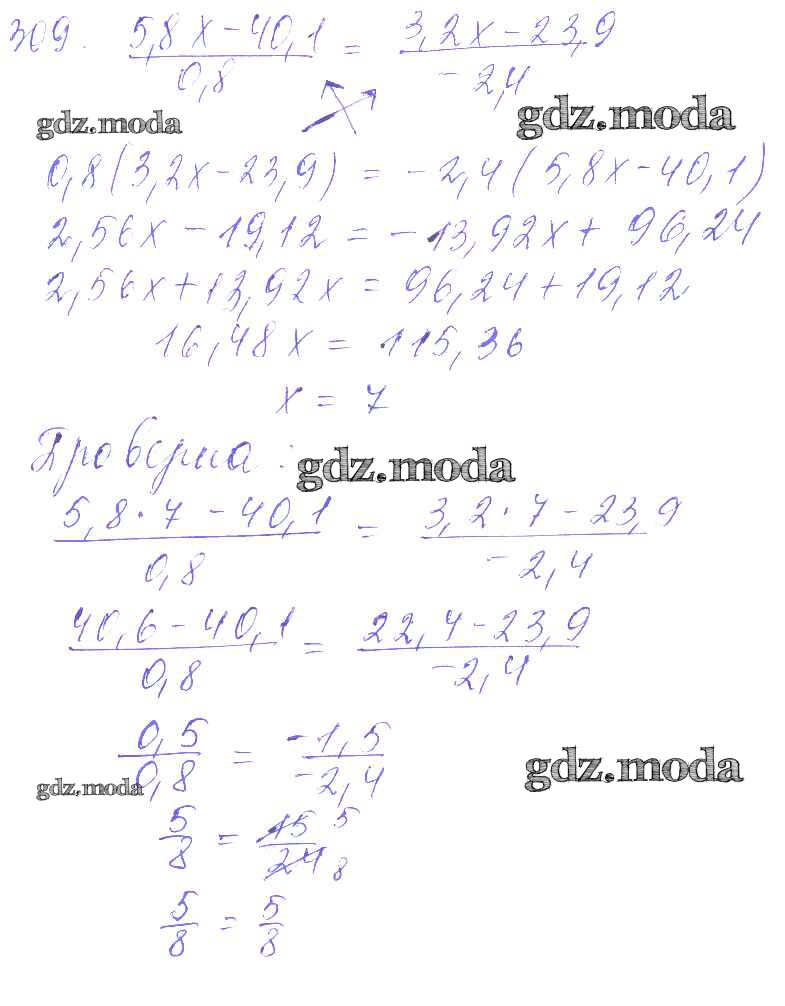 309. (5,8x − 40,1)/0,8 = (3,2x − 23,9)/−2,4
gdz.moda gdz.moda
0,8(3,2x − 23,9) = −2,4(5,8x − 40,1)
2,56x − 19,12 = −13,92x + 96,24
2,56x + 13,92x = 96,24 + 19,12
16,48x = 115,36
x = 7
Проверка: gdz.moda
(5,8·7 − 40,1)/0,8 = (3,2·7 − 23,9)/−2,4
(40,6 − 40,1)/0,8 = (22,4 − 23,9)/−2,4
0,5/0,8 = −1,5/−2,4
gdz.moda gdz.moda
5/8 = 15 5/24 8
5/8 = 5/8